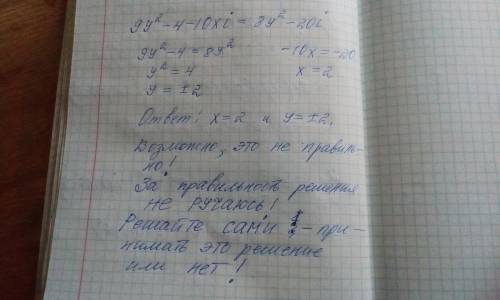 9y² - 4 - 10xi = 8y² - 20i
9y² - 4 = 8y² -10x = -20
y² = 4 x = 2
y = ±2
Ответ: x = 2 и y = ±2.
Возможно, это не правиль-
но!
За правильность решения
не ручаюсь!
Решайте сами - при-
нимать это решение
или нет!